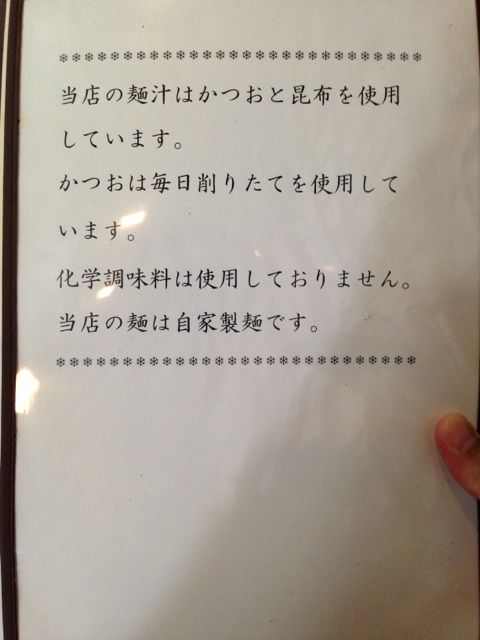 ❄❄❄❄❄❄❄❄❄❄❄❄❄❄❄❄❄❄❄❄❄❄❄❄❄❄❄❄
当店の麺汁はかつおと昆布を使用
しています。
かつおは毎日削りたてを使用して
います。
化学調味料は使用しておりません。
当店の麺は自家製麺です。
❄❄❄❄❄❄❄❄❄❄❄❄❄❄❄❄❄❄❄❄❄❄❄❄❄❄❄❄